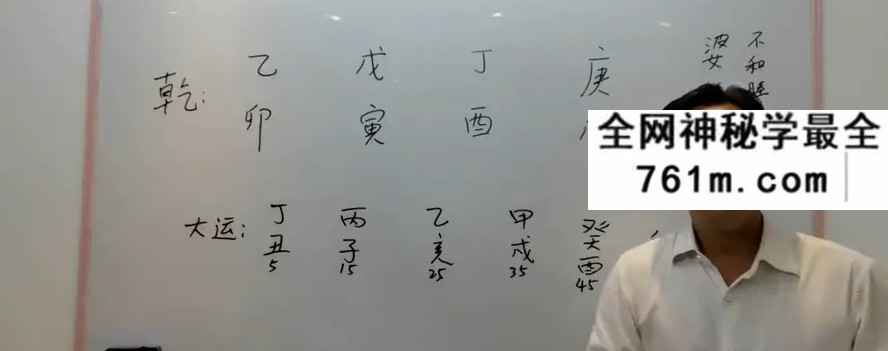 乾: 乙 戊 丁 庚
卯 寅 酉
大运: 丁 丙 乙 甲 癸
丑 子 亥 戌 酉
5 15 25 35 45
不和睦
全网神秘学最全
761m.com